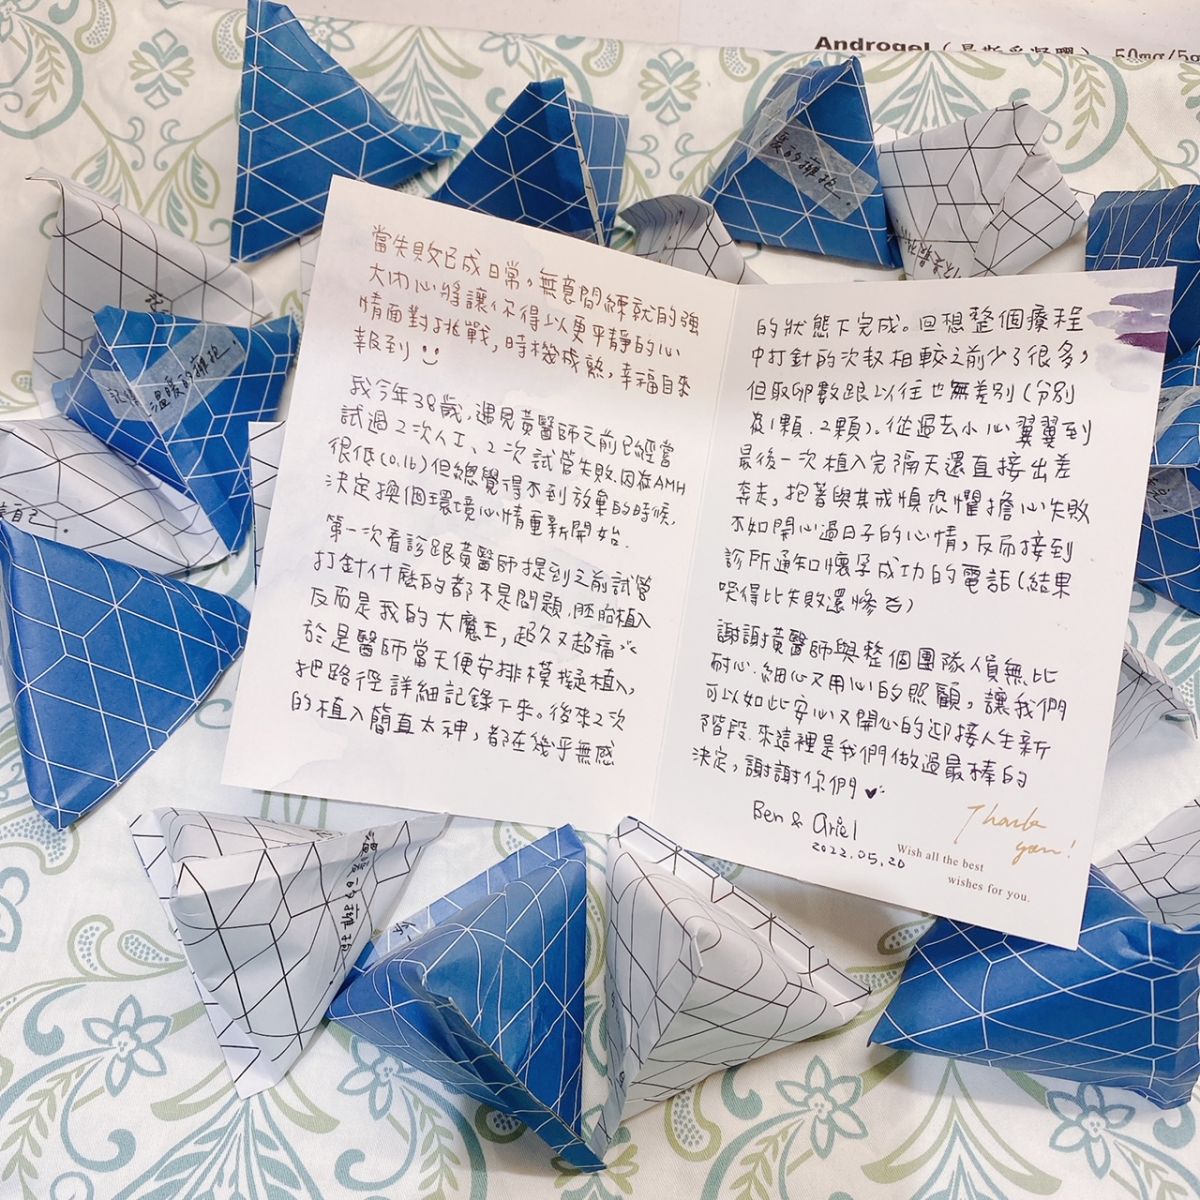 Androgel
50mg/5g
的擁抱.
溫暖的擁抱.
自己.
溫暖的擁抱.
當失敗已成日常，無意間練就的強
大內心將讓你得以更平靜的心
情面對挑戰，時機成熟，幸福自來
報到
我今年38歲，遇見黃醫師之前已經嘗
試過2次人工、2次試管失敗.因為AMH
很低(0.16)但總覺得不到放棄的時候，
決定換個環境心情重新開始.
第一次看診跟黃醫師提到之前試管
打針什麼的都不是問題.胚胎植入
反而是我的大魔王，超久又超痛
於是醫師當天便安排模擬植入，
把路徑詳細記錄下來。後來2次
的植入簡直太神，都在幾乎無感
的狀態下完成。回想整個療程
中打針的次數相較之前少了很多，
但取卵數跟以往也無差別(分別
為1顆.2顆)。從過去小心翼翼到
最後一次植入完隔天還直接出差
奔走，抱著與其戒慎恐懼擔心失敗
不如開心過日子的心情，反而接到
診所通知懷孕成功的電話(結果
哭得比失敗還慘)
謝謝黃醫師與整個團隊人員無比
耐心.細心又用心的照顧，讓我們
可以如此安心又開心的迎接人生新
階段.來這裡是我們做過最棒的
決定，謝謝你們♥
Ben & Ariel
2022.05.20
Thank
you!
Wish all the best
wishes for you.